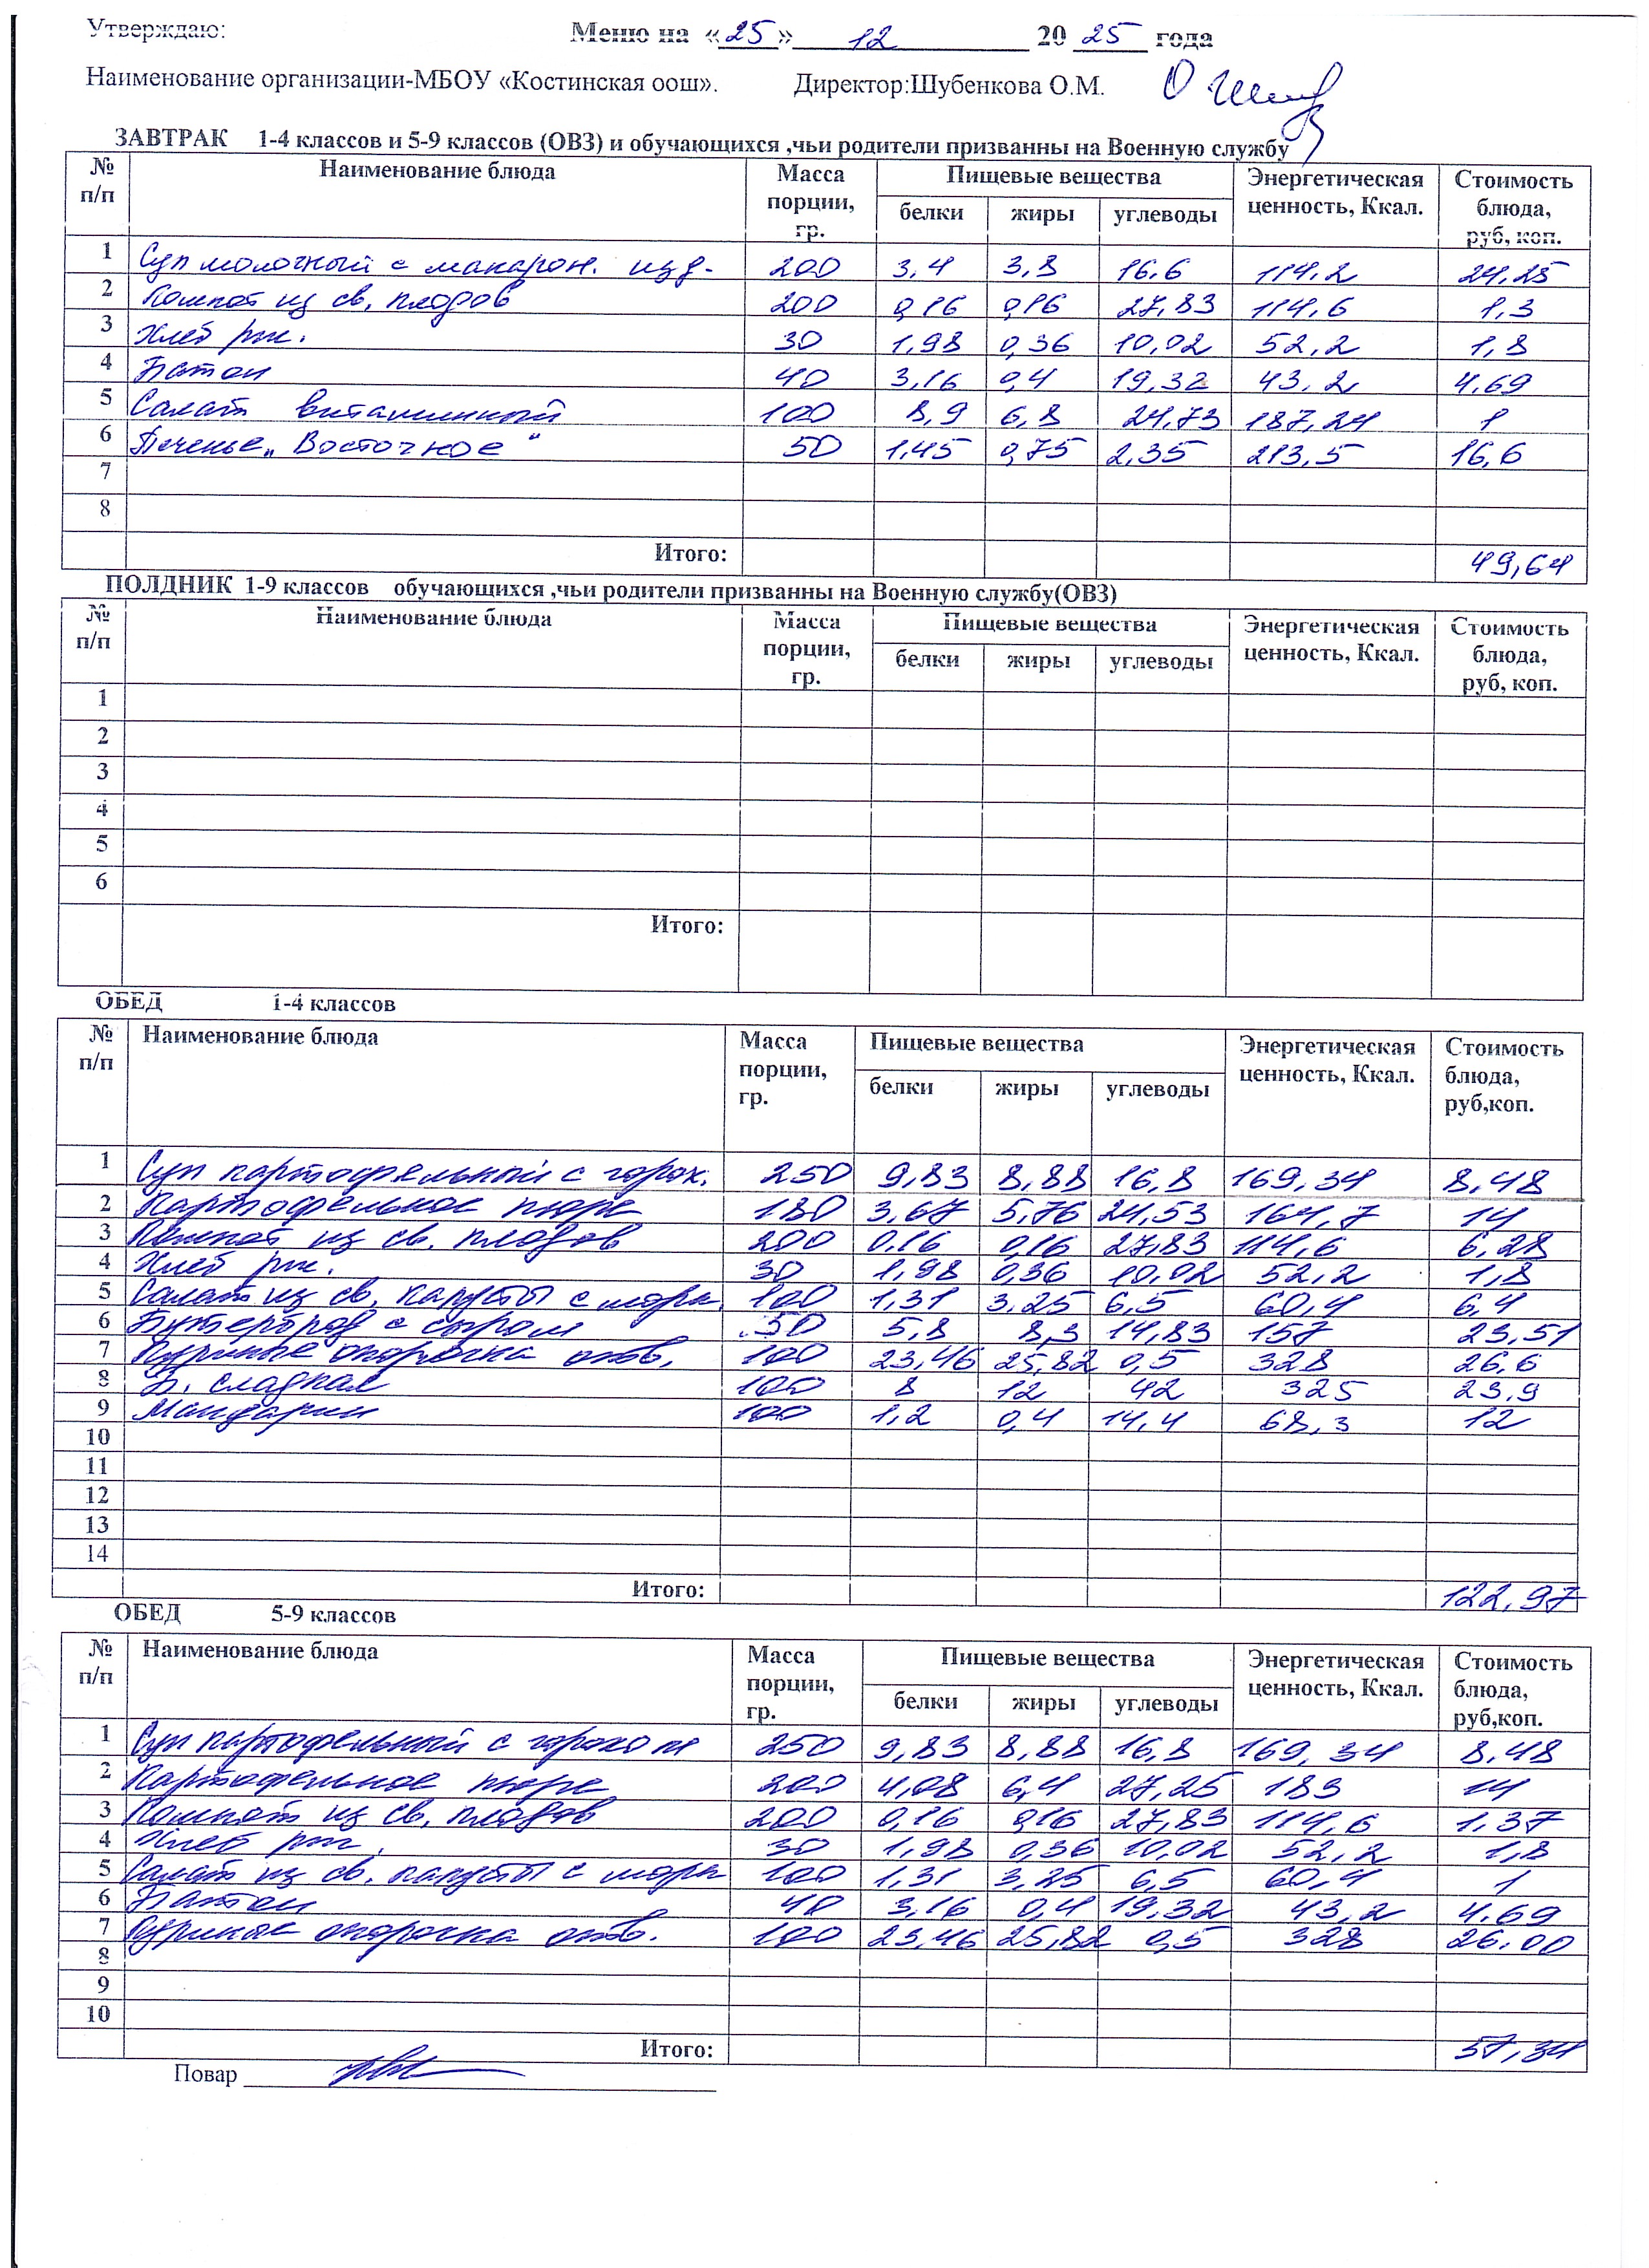 Утверждаю: Меню на «25» 12 20 25 года
Наименование организации-МБОУ «Костинская оош». Директор:Шубенкова О.М.
ЗАВТРАК 1-4 классов и 5-9 классов (ОВЗ) и обучающихся ,чьи родители призванны на Военную службу
№ п/п Наименование блюда Масса порции, гр. Пищевые вещества белки жиры углеводы Энергетическая ценность, Ккал. Стоимость блюда, руб, коп.
1 Суп молочный с макарон. изд. 200 3,4 3,8 16,6 114,2 24,25
2 Компот из св. плодов 200 0,16 0,16 27,83 114,6 1,3
3 Хлеб рж. 30 1,98 0,36 10,02 52,2 1,8
4 Батон 40 3,16 0,4 19,32 43,2 4,69
5 Салат витаминный 100 8,9 6,8 24,73 187,24 1
6 Печенье „Восточное“ 50 1,45 0,75 2,35 213,5 16,6
7
8
Итого: 49,64
ПОЛДНИК 1-9 классов обучающихся ,чьи родители призванны на Военную службу(ОВЗ)
№ п/п Наименование блюда Масса порции, гр. Пищевые вещества белки жиры углеводы Энергетическая ценность, Ккал. Стоимость блюда, руб, коп.
1
2
3
4
5
6
Итого:
ОБЕД 1-4 классов
№ п/п Наименование блюда Масса порции, гр. Пищевые вещества белки жиры углеводы Энергетическая ценность, Ккал. Стоимость блюда, руб,коп.
1 Суп картофельный с горох. 250 9,83 8,88 16,8 169,34 8,48
2 Картофельное пюре 180 3,67 5,76 24,53 164,7 14
3 Компот из св. плодов 200 0,16 0,16 27,83 114,6 6,28
4 Хлеб рж. 30 1,98 0,36 10,02 52,2 1,8
5 Салат из св. капусты с морк. 100 1,31 3,25 6,5 60,4 6,4
6 Бутерброд с сыром 50 5,8 8,3 14,83 157 23,51
7 Куриные окорочка отв. 100 23,46 25,82 0,5 328 26,6
8 Б. сладкая 100 8 12 42 325 23,9
9 Мандарин 100 1,2 0,4 14,4 68,3 12
10
11
12
13
14
Итого: 122,97
ОБЕД 5-9 классов
№ п/п Наименование блюда Масса порции, гр. Пищевые вещества белки жиры углеводы Энергетическая ценность, Ккал. Стоимость блюда, руб,коп.
1 Суп картофельный с горохом 250 9,83 8,88 16,8 169,34 8,48
2 Картофельное пюре 200 4,08 6,4 27,25 183 14
3 Компот из св. плодов 200 0,16 0,16 27,83 114,6 1,37
4 Хлеб рж. 30 1,98 0,36 10,02 52,2 1,8
5 Салат из св. капусты с морк 100 1,31 3,25 6,5 60,4 1
6 Батон 40 3,16 0,4 19,32 43,2 4,69
7 Куриные окорочка отв. 100 23,46 25,82 0,5 328 26,00
8
9
10
Итого: 57,34
Повар